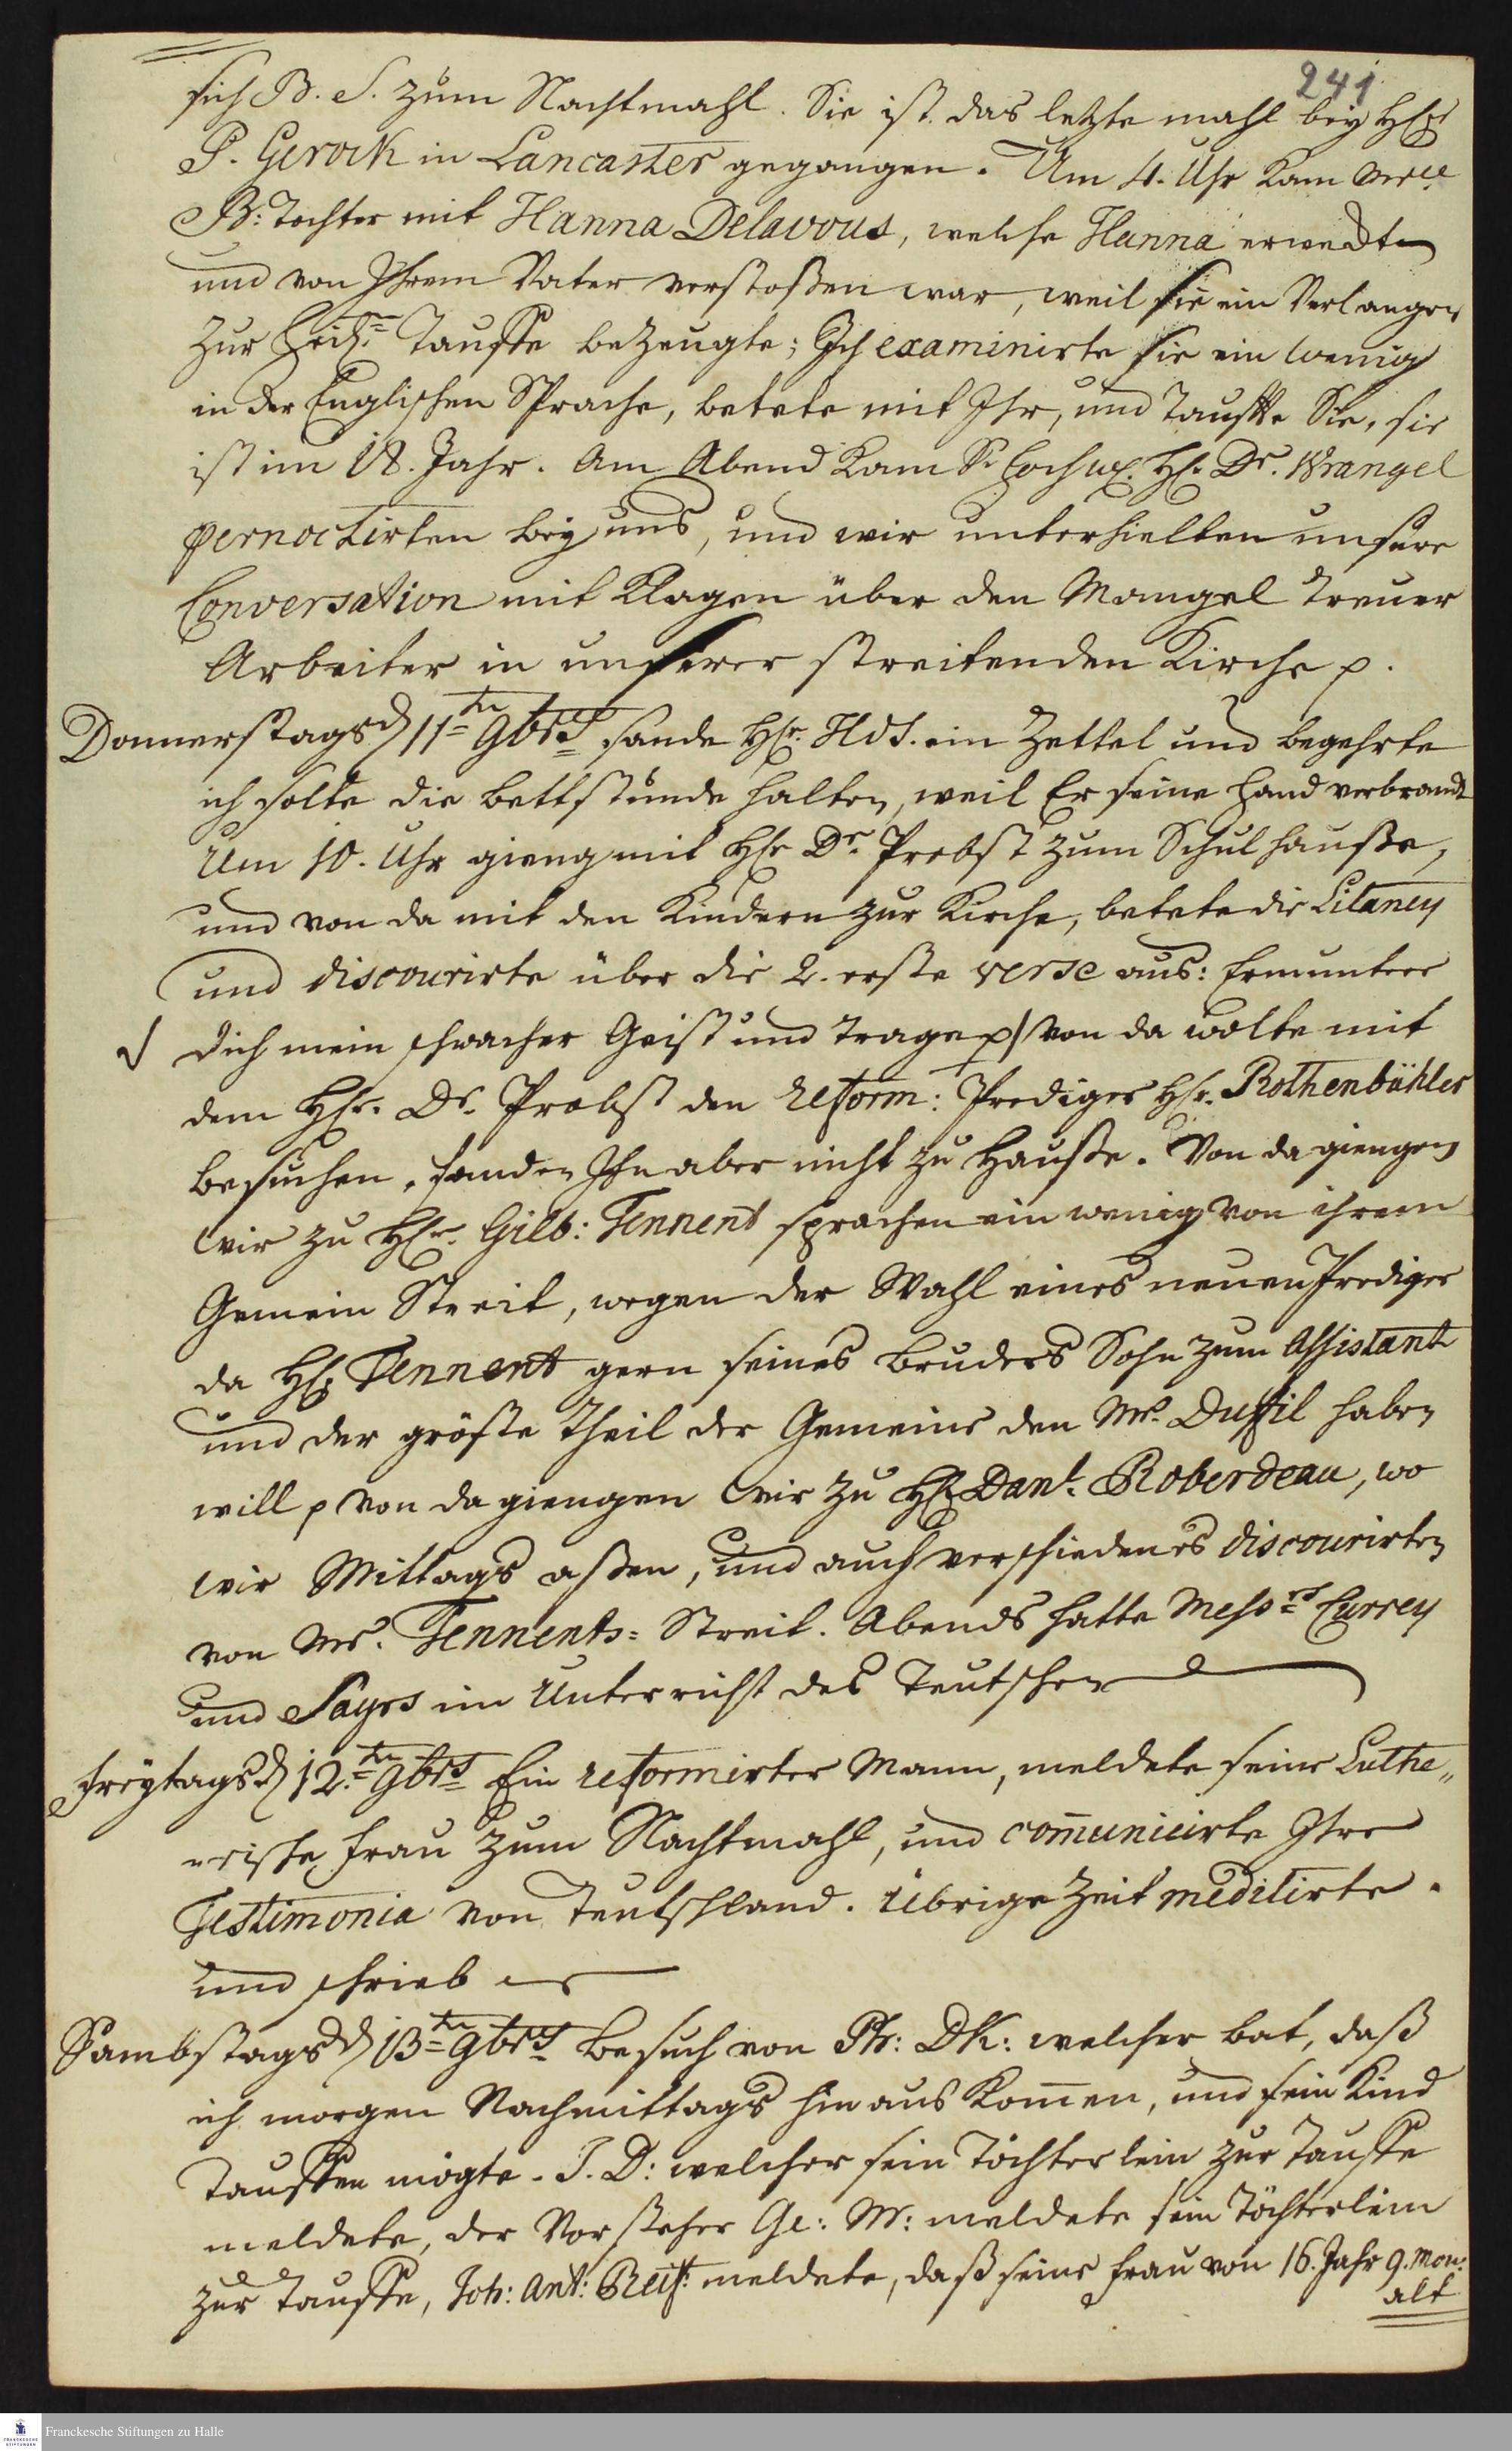 241
sich B. S. zum Nachtmahl. Sie ist das letzte mahl bey HE
P. Gerock in Lancaster gegangen. Um 4. Uhr kam
B: Tochter mit Hanna Delavous, welche Hanna erweckt
und von Ihrem Vater verstoßen war, weil sie ein Verlangen
zur Heil: Tauffe bezeugte; Ich examinirte sie ein wenig
in der Englischen Sprache, betete mit Ihr, und Tauffte Sie, sie
ist im 18. Jahr. Am Abend kam Sr Hochw: HE. Dr. Wrangel
pernoctirten bey uns, und wir unterhielten unsere
Conversation mit Klagen über den Mangel treuer
Arbeiter in unserer streitenden Kirche p.
Donnerstags d 11ten 9brs sande HEr. Hds. ein Zettel und begehrte
ich solte die bettstunde halten, weil Er seine Hand verbrandt
Um 10. Uhr gieng mit HEr Dr. Probst zum Schulhauße,
und von da mit den Kindern zur Kirche, betete die Litaney
und discourirte über die 2. erste verse aus: Ermuntere
Dich mein schwacher Geist und trage p/ Von da wolte mit
dem HEr. Dr. Probst den reform: Prediger HEr. Rothenbühler
besuchen, fanden Ihn aber nicht zu Hauße. Von da giengen
wir zu HEr. Gilb: Tennent sprachen ein wenig von ihrem
Gemein Streit, wegen der Wahl eines neuen Prediger
da HE Tennent gern seines Bruders Sohn zum Assistant
und der gröste Theil der Gemeine den Mr. Duffil haben
will p von da giengen wir zu HE Danl. Roberdeau, wo
wir Mittags aßen, und auch verschiedenes discourirten
von Mr. Tennents= Streit. Abends hatte Messrs Currey
und Sayrs im Unterricht des Teutschen
Freytags d 12.ten 9brs Ein reformirter Mann, meldete seine Luthe„
rische Frau zum Nachtmahl, und com̄unicirte Ihre
Testimonia von Teutschland. Übrige Zeit meditirte.
und schrieb
Sambstags d 13ten 9brs Besuch von Ph: DK: welcher bat, daß
ich morgen Nachmittags hinaus kom̄en, und sein Kind
Tauffen mögte. J. D: welcher sein Töchterlein zur Tauffe
meldete, der Vorsteher Ge: W: meldete sein Töchterlein
zur Tauffe, Joh: Ant: Reiß: meldete, daß seine Frau von 16. Jahr 9. Mon:
alt
Franckesche Stiftungen zu Halle